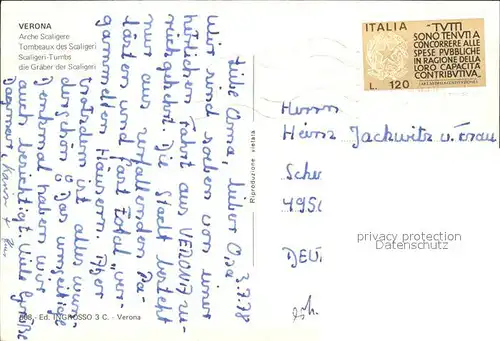 VERONA
Arche Scaligere
Tombeaux des Scaligeri
Scaligeri-Tumbs
die Gräber der Scaligeri
3.7.78
Liebe Oma, lieber Opa
Wir sind soeben von einer
herrlichen Fahrt aus VERONA zu-
rückgekehrt. Die Stadt besteht
nur aus verfallenden Pa-
lästen und fast total "ver-
gammelten Häusern. Aber
trotzdem ist alles wun-
derschön. Das umseitige
Denkmal haben wir
auch besichtigt. Viele Grüße
Dagmar, Hans +
608 - Ed. INGROSSO 3 C. - Verona
Riproduzione vietata
ITALIA
TUTTI
SONO TENUTI A
CONCORRERE ALLE
SPESE PUBBLICHE
IN RAGIONE DELLA
LORO CAPACITÀ
CONTRIBUTIVA.
L. 120
Herrn
Heinz Jackwitz u. Frau
Sche
495
DEU
privacy protection
Datenschutz